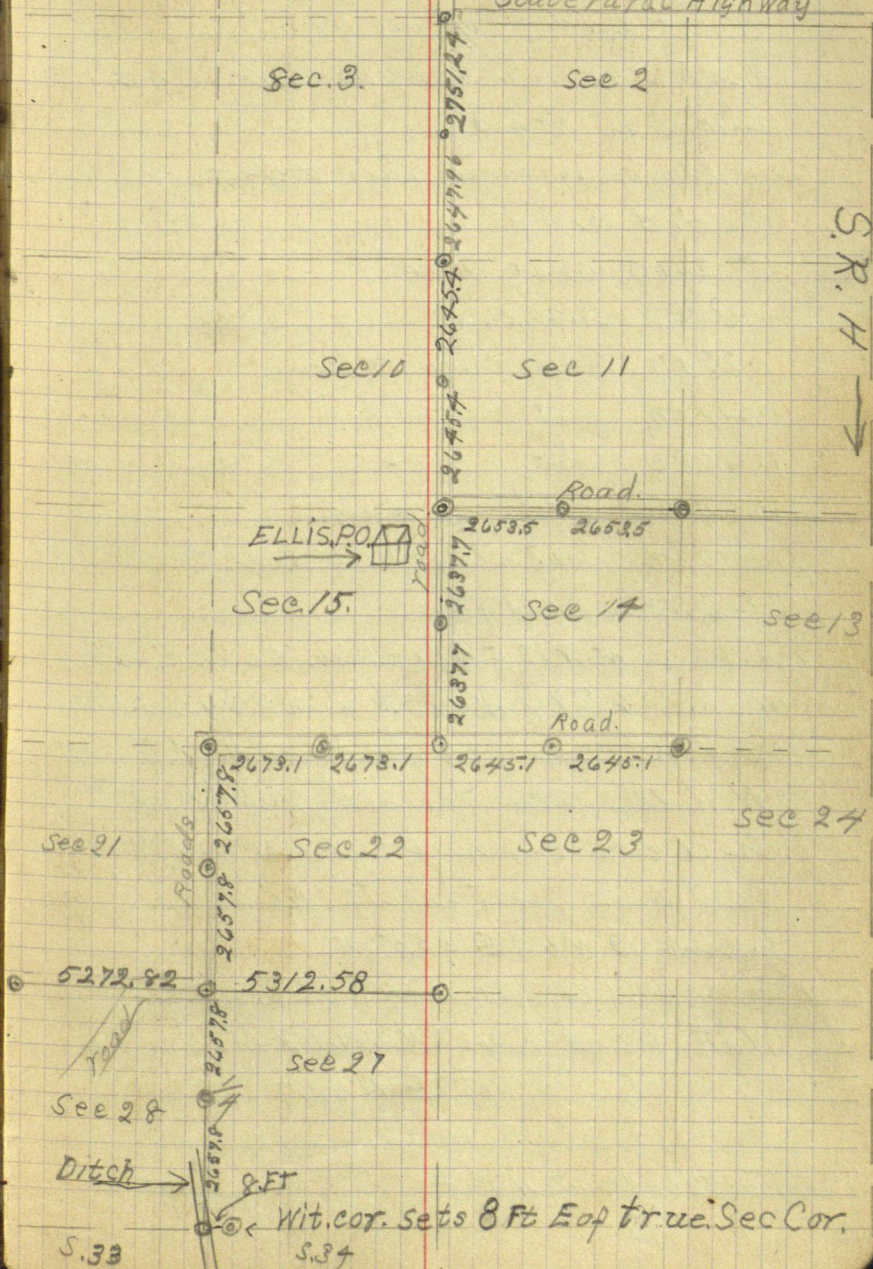 Highway
Sec. 3.
Sec 2
2751.24
2647.96
S.R. H
2645.4
Sec 10
Sec 11
2645.4
Road.
2653.5
2653.5
ELLIS.P.O.
road
2637.7
Sec. 15.
Sec 14
Sec 13
2637.7
Road.
2673.1
2673.1
2645.1
2645.1
2657.8
Roads
Sec 21
Sec 22
Sec 23
Sec 24
2657.8
5272.82
5312.58
road
2657.8
Sec 27
Sec 28
2657.8
Ditch
8 FT
Wit. cor. sets 8 Ft E of true Sec Cor.
S.33
S.34